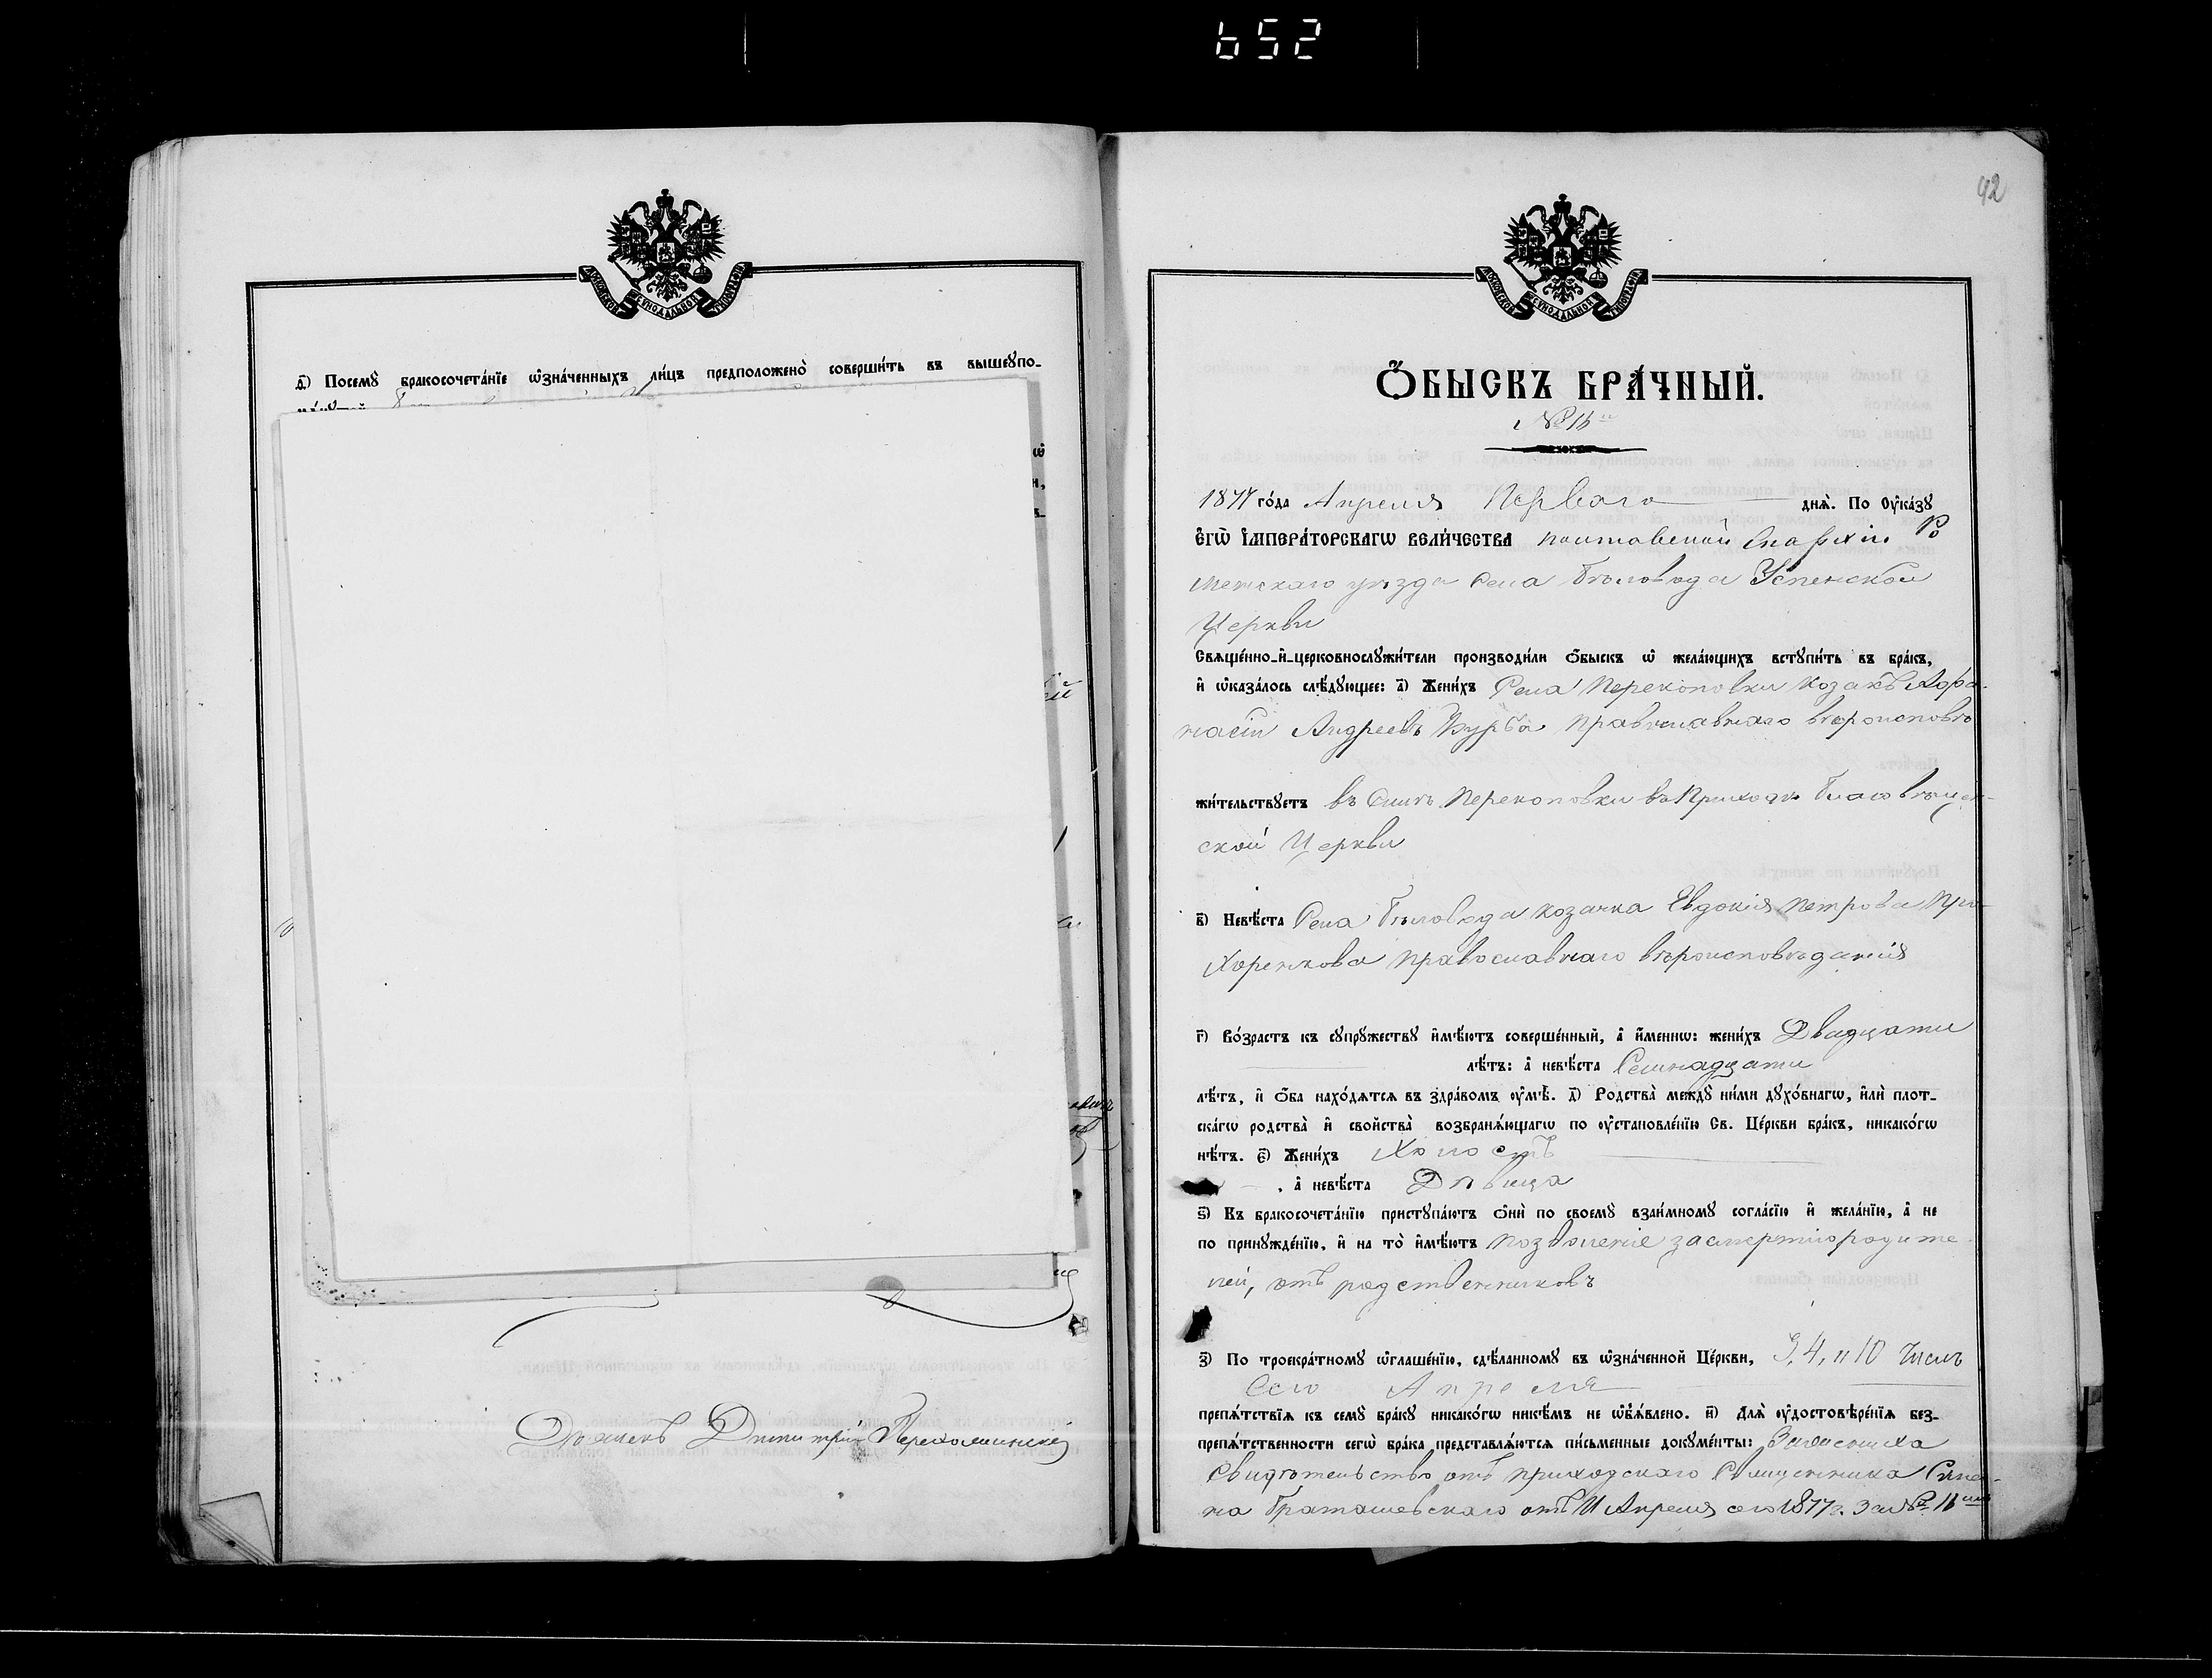 652
а҃) Посемꙋ̀ бракосочета́нїе ѡ҆зна́ченныхъ ли́цъ предположено̀ соверши́ть въ вышеꙋпо-
Дьячекъ Дмитрій
42
Ѻ҆БЫСКЪ БРА́ЧНЫЙ.
1877 го́да Апреля Перваго днѧ̀. По Оу҆ка́зꙋ
Е҆ГѠ̀ И҆МПЕРА́ТОРСКАГѠ ВЕЛИ́ЧЕСТВА Полтавской Епархіи Ро
менскаго уѣзда Села Бѣловода Успенской
Церкви
Свѧще́нно-и҆-церковнослꙋжи́тели производи́ли ѻ҆́быскъ ѡ҆ жела́ющихъ встꙋпи́ть въ бра́къ,
и҆ ѡ҆каза́лось слѣ́дꙋющее: а҃) Жени́хъ Села Перекоповки козакъ Афа-
насій Андреевъ Журба православнаго вѣроисповѣ
жи́тельствꙋетъ въ Селѣ Перекоповки въ Приходѣ Благовѣщен-
ской Церкви
в҃) Невѣ́ста Села Бѣловода козачка Евдокія Петрова При-
ходенкова православнаго вѣроисповѣданія
г҃) Во́зрастъ къ сꙋпрꙋ́жествꙋ и҆мѣ́ютъ соверше́нный, а҆ и҆́меннѡ: жени́хъ Двадцати
лѣ́тъ: а҆ невѣ́ста Семнадцати
лѣ́тъ, и҆ ѻ҆́ба нахо́дѧтсѧ въ здра́вомъ ᲂу҆мѣ̀. д҃) Родства̀ междꙋ̀ ни́ми дꙋхо́внагѡ, и҆лѝ плот-
ска́гѡ родства̀ и҆ свойства̀ возбранѧ́ющагѡ по ᲂу҆становле́нїю Св. Це́ркви бра́къ, никако́гѡ
нѣ́тъ. є҃) Жени́хъ Холостъ
, а҆ невѣ́ста Дѣвица
ѕ҃) Къ бракосочета́нїю пристꙋпа́ютъ ѻ҆нѝ по своемꙋ̀ взаи́мномꙋ согла́сїю и҆ жела́нїю, а҆ не
по принꙋжде́нїю, и҆ на то̀ и҆мѣ́ютъ позволеніе засмертію родите-
лей, отъ родственниковъ
з҃) По троекра́тномꙋ ѡ҆глаше́нїю, сдѣ́ланномꙋ въ ѡ҆зна́ченной Це́ркви, 3, 4, и 10 Числъ
Сего Апреля
препѧ́тствїѧ къ семꙋ̀ бра́кꙋ никако́гѡ никѣ́мъ не ѡ҆б̾ѧ́влено. и҃) Длѧ̀ ᲂу҆достовѣре́нїѧ без-
препѧ́тственности сегѡ̀ бра́ка представлѧ́ютсѧ пи́сьменные докꙋме́нты:
Свидѣтельство отъ приходскаго Священника
отъ 11 Апреля сего 1877 г. за №